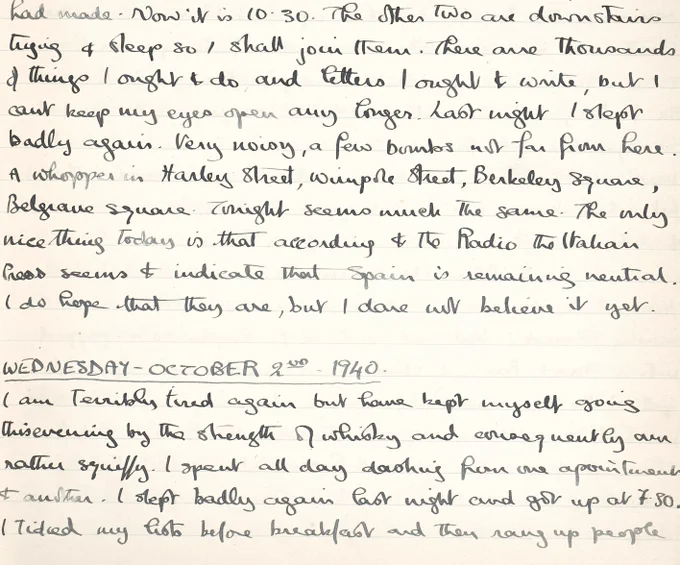 had made. Now it is 10.30. The other two are downstairs
trying & sleep so I shall join them. There are Thousands
of things I ought & do and letters I ought & write, but I
cant keep my eyes open any longer. Last night I slept
badly again. Very noisy, a few bombs not far from here.
A whopper in Harley Street, Wimpole Street, Berkeley Square,
Belgrave Square. Tonight seems much the same. The only
nice thing today is that according & the Radio the Italian
Press seems & indicate that Spain is remaining neutral.
I do hope that they are, but I dare not believe it yet.
WEDNESDAY - OCTOBER 2ND. 1940.
I am Terribly tired again but have kept myself going
this evening by the strength of whisky and consequently am
rather squiffy. I spent all day dashing from one apointment
& another. I slept badly again last night and got up at 7.30.
I Tidied my lists before breakfast and then rang up people